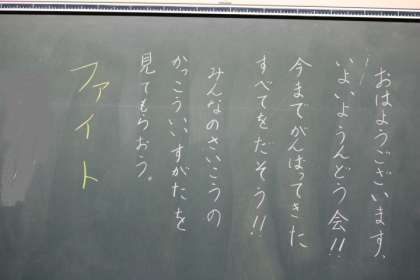 おはようございます、
いよいようんどう会!!
今までがんばってきた
すべてをだそう!!
みんなのさいこうの
かっこういいすがたを
見てもらおう。
ファイト